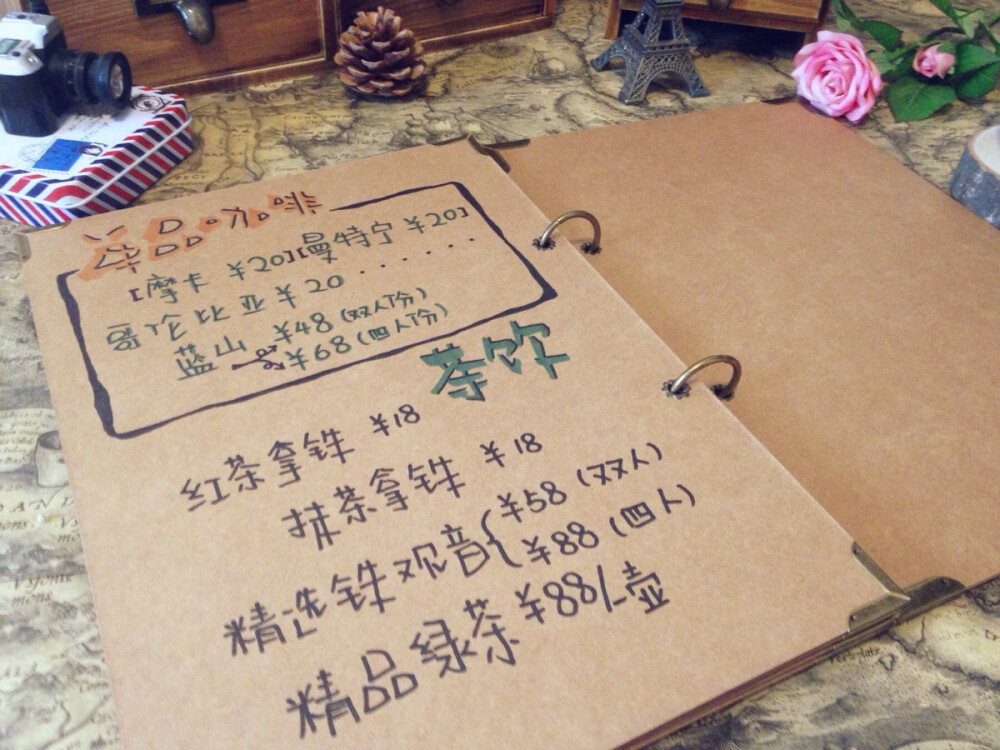 单品咖啡
[摩卡 ¥20][曼特宁 ¥20]
哥伦比亚 ¥20 ......
蓝山 ¥48 (双人份)
¥68 (四人份)
茶饮
红茶拿铁 ¥18
抹茶拿铁 ¥18
精选铁观音{¥58 (双人)
¥88 (四人)
精品绿茶 ¥88/壶